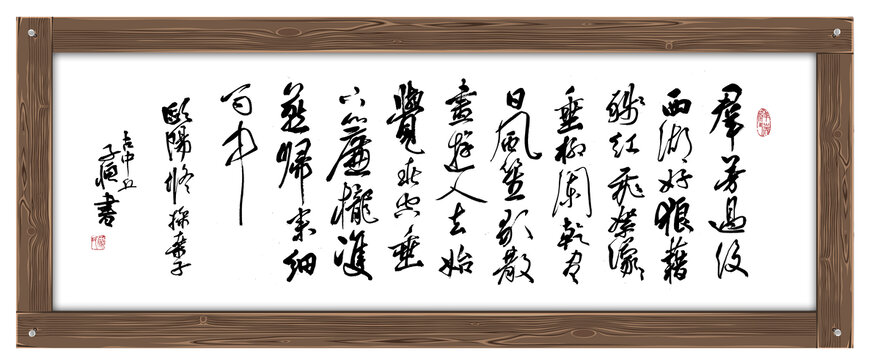 羣芳過後
西湖好狼藉
殘紅飛絮濛〻
垂柳闌乾盡
日風笙歌散
盡遊人去始
覺春空垂
下簾櫳雙
燕歸來細
雨中
歐陽修採桑子
書